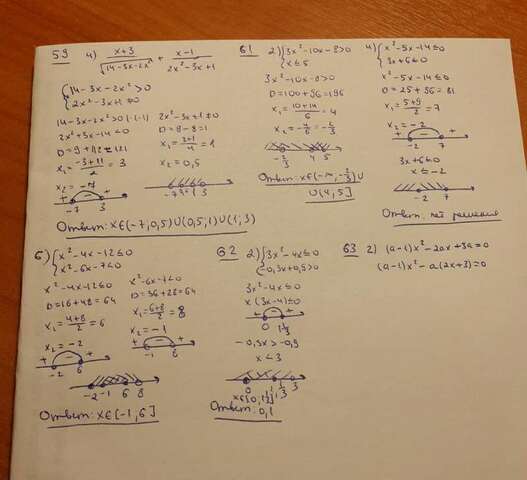 59 4) (x+3)/√(14-3x-2x²) + (x-1)/(2x²-3x+1)
{14-3x-2x²>0
2x²-3x+1≠0
14-3x-2x²>0 |·(-1)
2x²+3x-14<0
D=9+112=121
x₁=(-3+11)/2=3
x₂=-7
+ - +
-7 3
2x²-3x+1≠0
D=9-8=1
x₁=(3+1)/4=1
x₂=0,5
-7 1 3
Ответ: x∈(-7,0,5)∪(0,5,1)∪(1,3)
61 2) {3x²-10x-8>0
x≤5
3x²-10x-8>0
D=100+96=196
x₁=(10+14)/6=4
x₂=-4/6=-2/3
-2/3 4 5
Ответ: x∈(-∞,-2/3)∪
∪(4,5]
4) {x²-5x-14≤0
3x+6≤0
x²-5x-14≤0
D=25+56=81
x₁=(5+9)/2=7
x₂=-2
+ - +
-2 7
3x+6≤0
x≤-2
-2 7
Ответ: нет решения
6) {x²-4x-12≤0
x²-6x-7<0
x²-4x-12≤0
D=16+48=64
x₁=(4+8)/2=6
x₂=-2
+ - +
-2 6
x²-6x-7<0
D=36+28=64
x₁=(6+8)/2=8
x₂=-1
+ - +
-1 8
-2 -1 6 8
Ответ: x∈(-1,6]
62 2) {3x²-4x≤0
-0,3x+0,9>0
3x²-4x≤0
x(3x-4)≤0
+ - +
0 1⅓
-0,3x>-0,9
x<3
0 1 1⅓ 3
x∈[0,1⅓]
Ответ: 0,1
63 2) (a-1)x²-2ax+3a=0
(a-1)x²-a(2x+3)=0